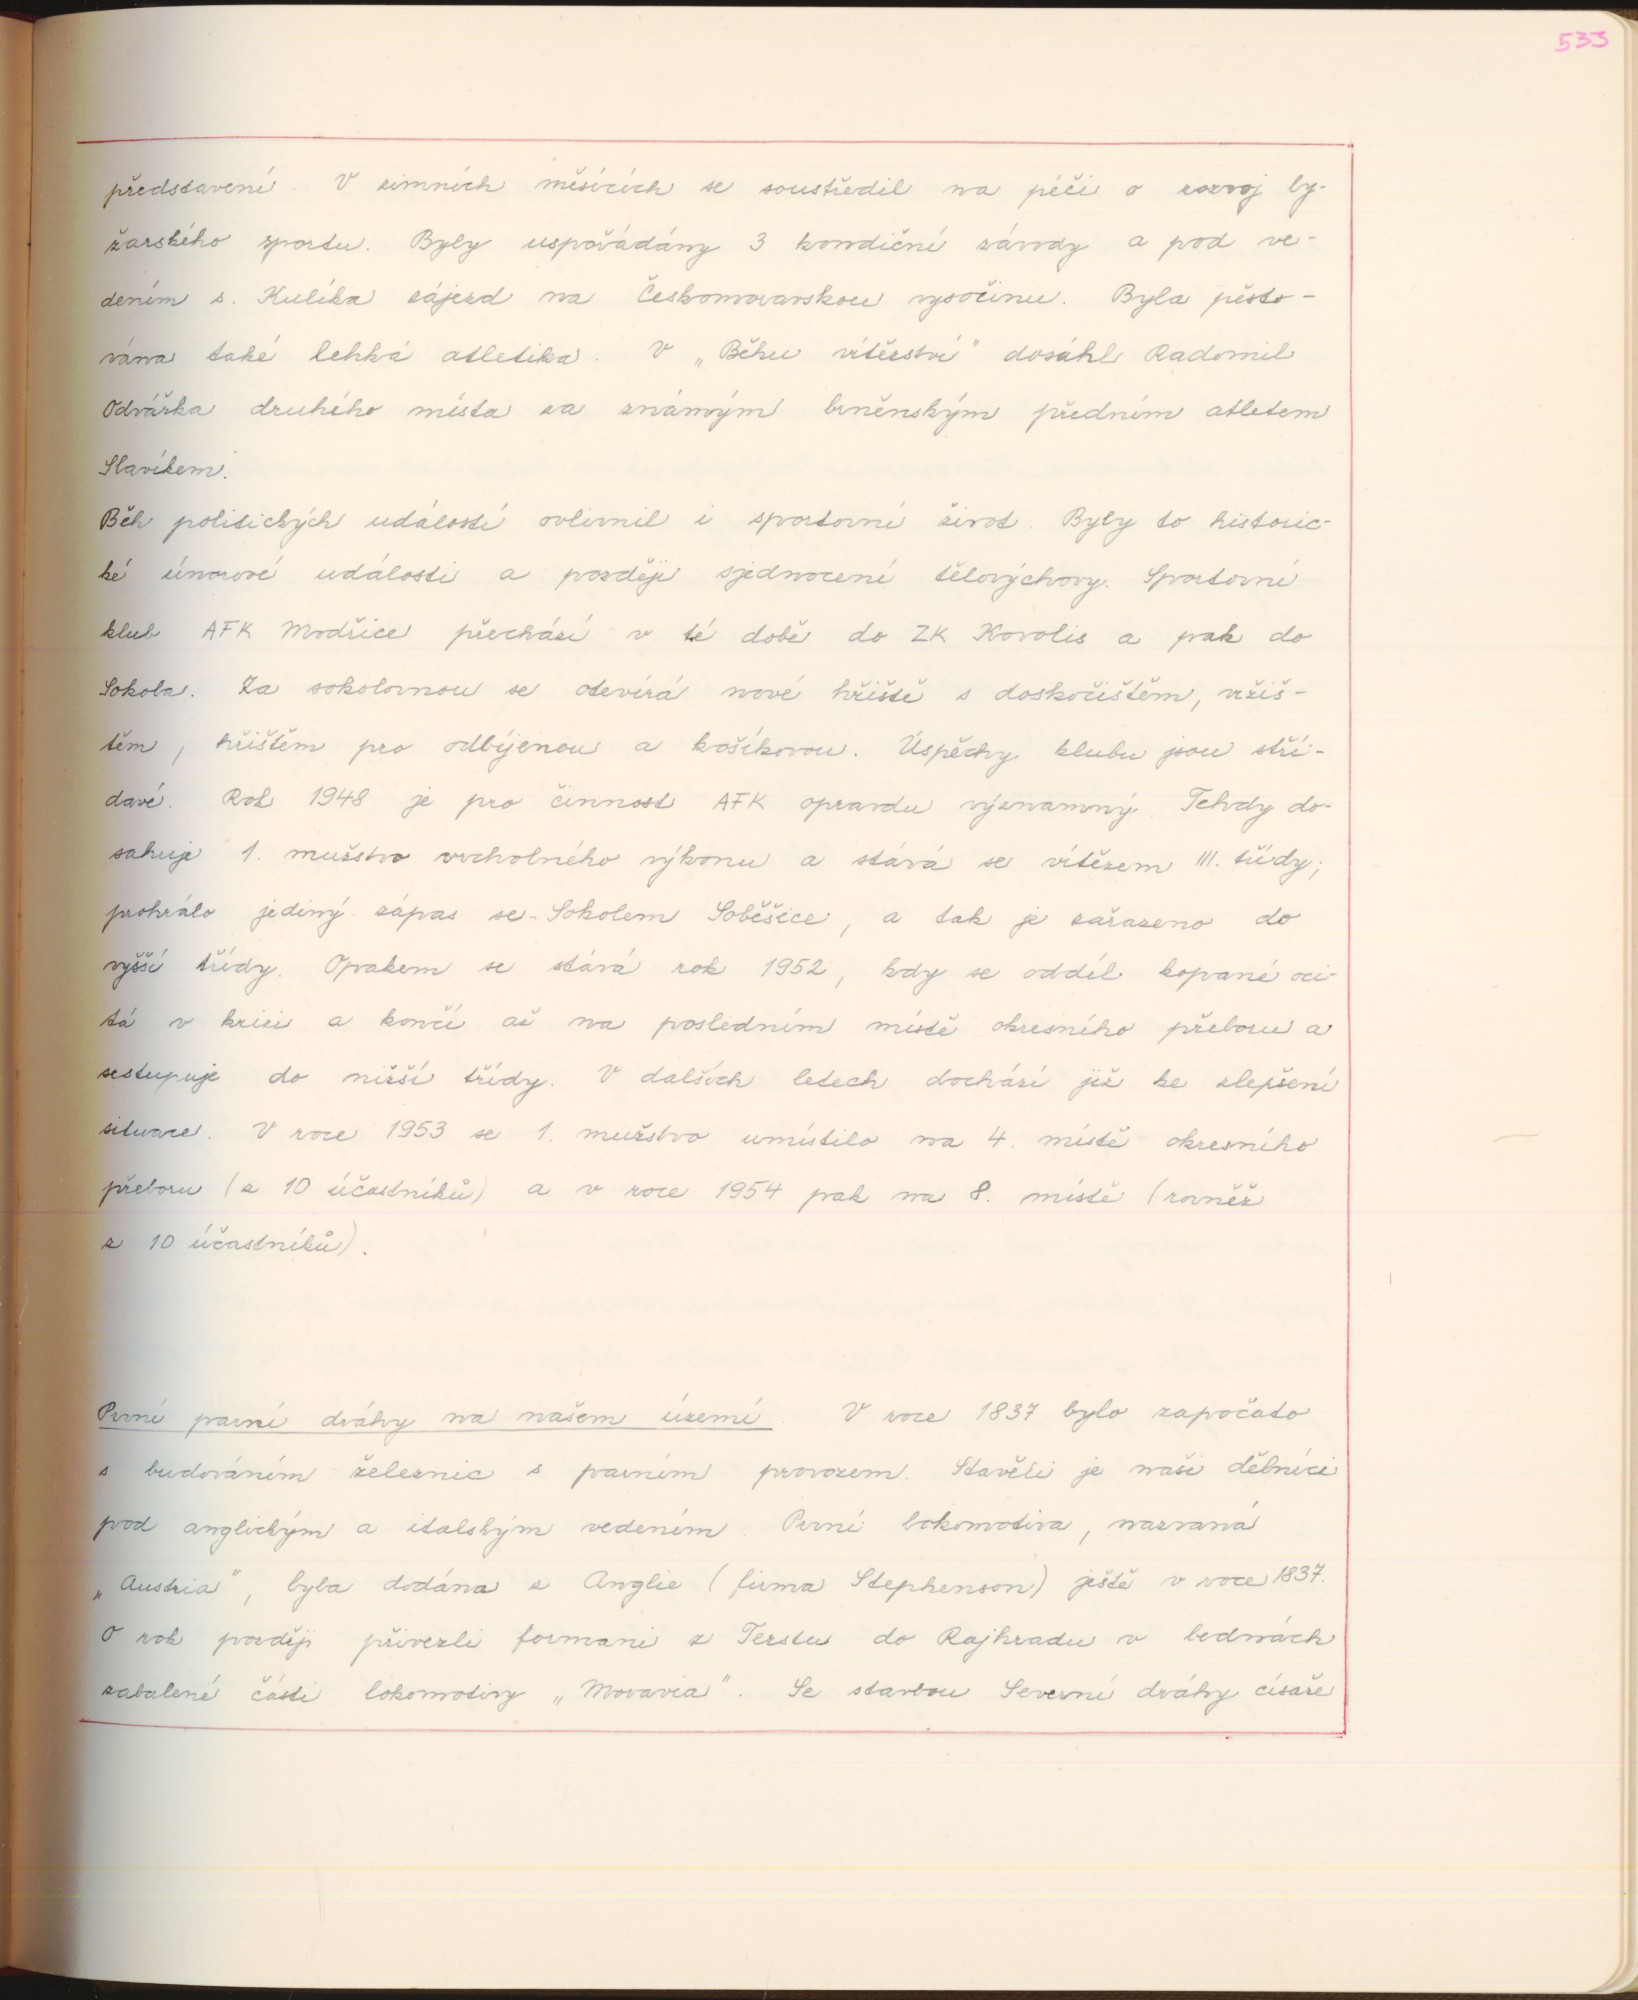 533
představení. V zimních měsících se soustředil na péči o rozvoj ly-
žařského sportu. Byly uspořádány 3 kondiční závody a pod ve-
dením s. Kulíka zájezd na Českomoravskou vysočinu. Byla pěsto-
vána také lehká atletika. V „Běhu vítězství" dosáhl Radomil
Odvářka druhého místa za známým brněnským předním atletem
Slavíkem.
Běh politických událostí ovlivnil i sportovní život. Byly to historic-
ké únorové události a později sjednocení tělovýchovy. Sportovní
klub AFK Modřice přechází v té době do ZK Kovolis a pak do
Sokola. Za sokolovnou se otevírá nové hřiště s doskočištěm, vržiš-
těm, hřištěm pro odbíjenou a košíkovou. Úspěchy klubu jsou stří-
davé. Rok 1948 je pro činnost AFK opravdu významný. Tehdy do-
sahuje 1. mužstvo vrcholného výkonu a stává se vítězem III. třídy;
prohrálo jediný zápas se Sokolem Soběšice, a tak je zařazeno do
vyšší třídy. Opakem se stává rok 1952, kdy se oddíl kopané oci-
tá v krizi a končí až na posledním místě okresního přeboru a
sestupuje do nižší třídy. V dalších letech dochází již ke zlepšení
situace. V roce 1953 se 1. mužstvo umístilo na 4. místě okresního
přeboru (z 10 účastníků) a v roce 1954 pak na 8. místě (rovněž
z 10 účastníků).
První parní dráhy na našem území. V roce 1837 bylo započato
s budováním železnic s parním provozem. Stavěli je naši dělníci
pod anglickým a italským vedením. První lokomotiva, nazvaná
„Austria", byla dodána z Anglie (firma Stephenson) ještě v roce 1837.
O rok později přivezli formani z Terstu do Rajhradu v bednách
zabalené části lokomotivy „Moravia". Se stavbou Severní dráhy císaře